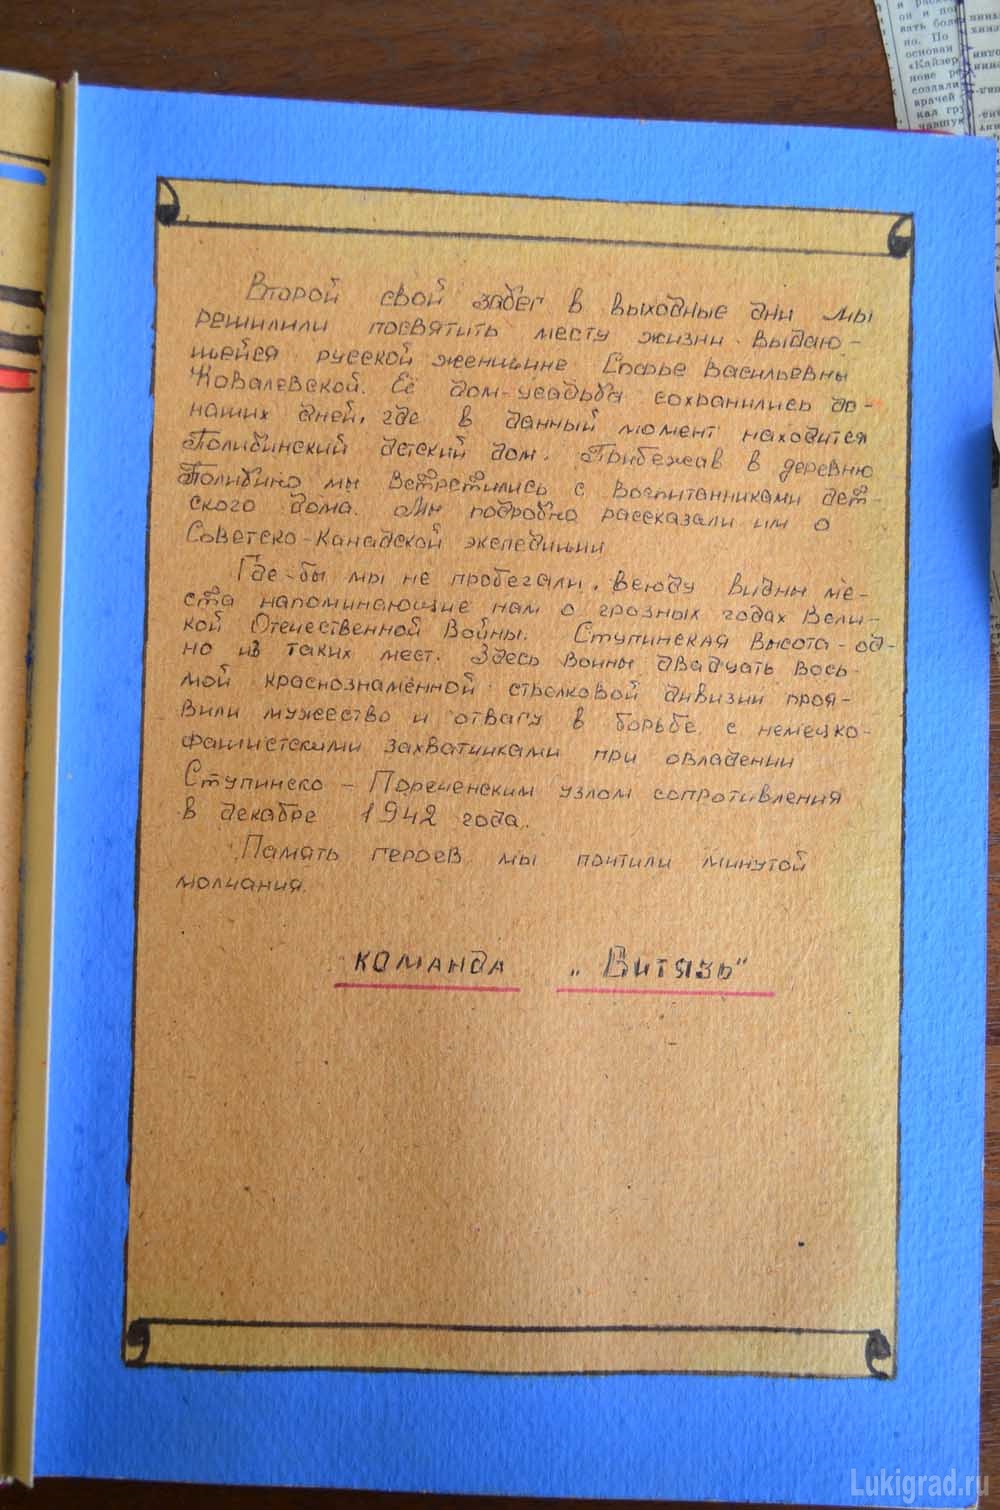 Второй свой забег в выходные дни мы
решилили посвятить месту жизни выдаю-
щейся русской женщине Софье Васильевны
Ковалевской. Её дом-усадьба сохранились до-
наших дней, где в данный момент находится
Полибинский детский дом. Прибежав в деревню
Полибино мы встретились с воспитанниками дет-
ского дома. Мы подробно рассказали им о
Советско-Канадской экспедиции
Где-бы мы не пробегали, всюду видны ме-
ста напоминающие нам о грозных годах Вели-
кой Отечественной Войны. Ступинская высота - од-
но из таких мест. Здесь воины двадцать вось-
мой краснознамённой стрелковой дивизии проя-
вили мужество и отвагу в борьбе с немецко-
фашистскими захватчиками при овладении
Ступинско - Пореченским узлом сопротивления
в декабре 1942 года.
Память героев мы почтили минутой
молчания.
команда „Витязь"
он и по
вать боле
но. По
основан
«Кайзер
нове ре
создали
врачей
кал гру
чавшую
Lukigrad.ru